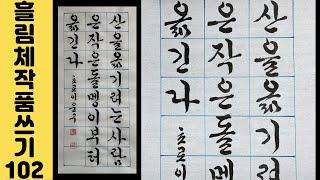 흘림체작품쓰기
102
산을옮기려는사람
은작은돌멩이부터
옮긴다
산을옮기려
은작은돌멩
옮긴다